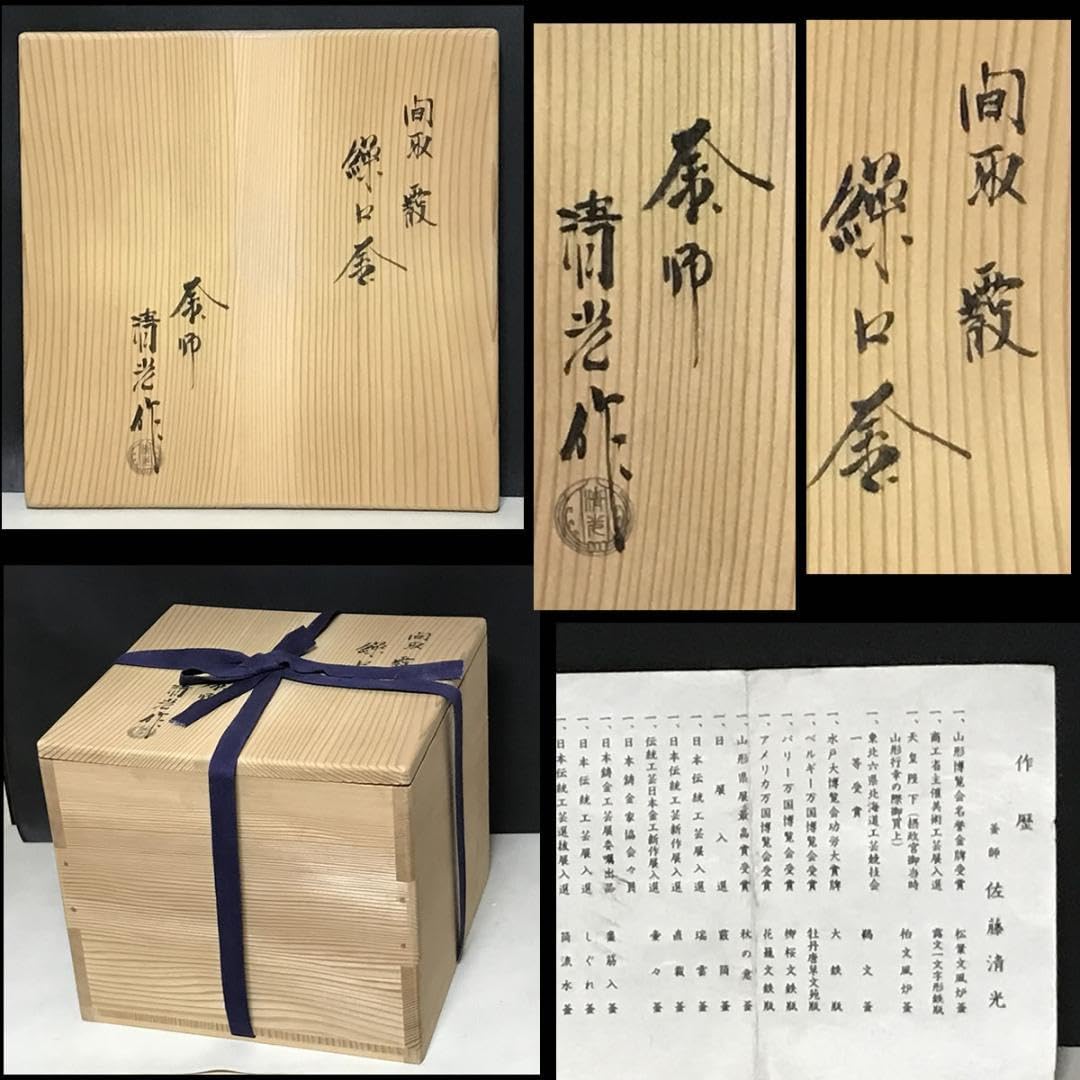 間取 霰
繰口釜
釜師
清光作
清光
釜師
清光作
清光
間取 霰
繰口釜
間取
繰口
清光作
作歴
釜師 佐藤清光
一、山形博覧会名誉金牌受賞 松葉文風炉釜
一、商工省主催美術工芸展入選 霰文一文字形鉄瓶
一、天皇陛下(摂政宮御当時
山形行幸の際御買上) 柏文風炉釜
一、東北六県北海道工芸競技会
一等受賞 鶴文釜
一、水戸大博覧会功労大賞牌 大鉄瓶
一、ベルギー万国博覧会受賞 牡丹唐草文苑瓶
一、パリー万国博覧会受賞 柳桜文鉄瓶
一、アメリカ万国博覧会受賞 花籠文鉄瓶
一、山形県展最高賞受賞 秋の意釜
一、日展入選 霰筒釜
一、日本伝統工芸展入選 瑞雲釜
一、日本伝統工芸新作展入選 直裁釜
一、伝統工芸日本金工新作展入選 重々釜
一、日本鋳金家協会々員
一、日本鋳金工芸展委嘱出品 筋入釜
一、日本伝統工芸展入選 しぐれ釜
一、日本伝統工芸選抜展入選 筒流水釜